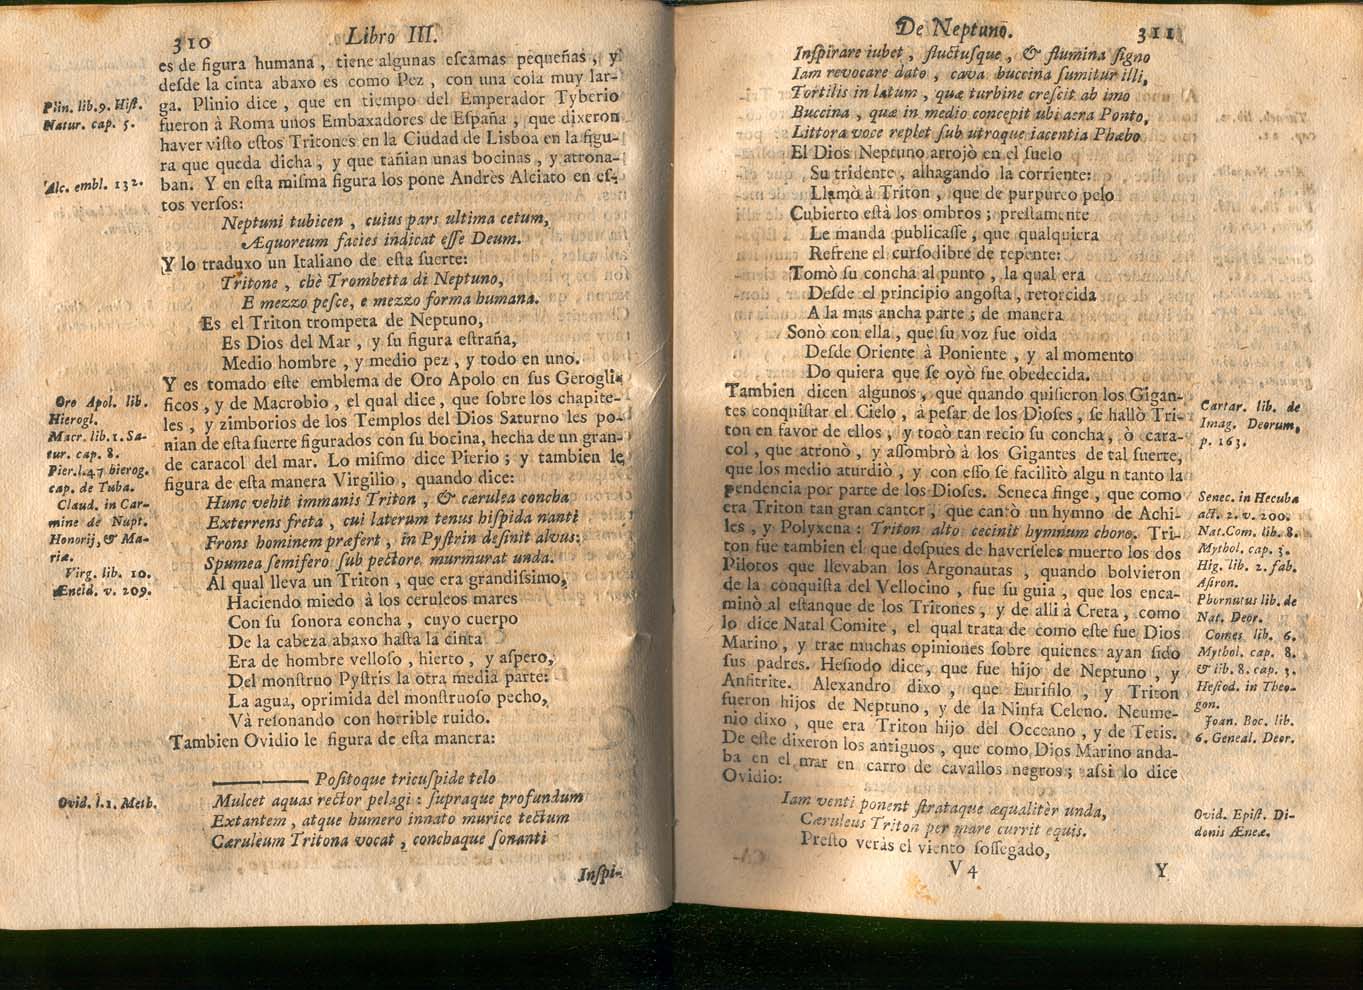 310 Libro III.
es de figura humana, tiene algunas eſcamas pequeñas, y
deſde la cinta abaxo es como Pez, con una cola muy lar-
ga. Plinio dice, que en tiempo del Emperador Tyberio
fueron à Roma unos Embaxadores de Eſpaña, que dixeron
haver viſto eſtos Tritones en la Ciudad de Lisboa en la figu-
ra que queda dicha, y que tañian unas bocinas, y atrona-
ban. Y en eſta miſma figura los pone Andrès Alciato en eſ-
tos verſos:
Neptuni tubicen, cuius pars ultima cetum,
Æquoreum facies indicat eſſe Deum.
Y lo traduxo un Italiano de eſta ſuerte:
Tritone, chè Trombetta di Neptuno,
E mezzo peſce, e mezzo forma humana.
Es el Triton trompeta de Neptuno,
Es Dios del Mar, y ſu figura eſtraña,
Medio hombre, y medio pez, y todo en uno.
Y es tomado eſte emblema de Oro Apolo en ſus Gerogli-
ficos, y de Macrobio, el qual dice, que ſobre los chapite-
les, y zimborios de los Templos del Dios Saturno les po-
nian de eſta ſuerte figurados con ſu bocina, hecha de un gran-
de caracol del mar. Lo miſmo dice Pierio; y tambien le
figura de eſta manera Virgilio, quando dice:
Hunc vehit immanis Triton, & cærulea concha
Exterrens freta, cui laterum tenus hiſpida nanti
Frons hominem præfert, in Pyſtrin deſinit alvus:
Spumea ſemifero ſub pectore murmurat unda.
Al qual lleva un Triton, que era grandiſsimo,
Haciendo miedo à los ceruleos mares
Con ſu ſonora concha, cuyo cuerpo
De la cabeza abaxo haſta la cinta
Era de hombre velloſo, hierto, y aſpero,
Del monſtruo Pyſtris la otra media parte:
La agua, oprimida del monſtruoſo pecho,
Và reſonando con horrible ruido.
Tambien Ovidio le figura de eſta manera:
Poſitoque tricuſpide telo
Mulcet aquas rector pelagi: ſupraque profundum
Extantem, atque humero innato murice tectum
Cæruleum Tritona vocat, conchaque ſonanti
Inſpi-
Plin. lib. 9. Hiſt.
Natur. cap. 5.
Alc. embl. 132.
Oro Apol. lib.
Hierogl.
Macr. lib. 1. Sa-
tur. cap. 8.
Pier. l. 47 hierog.
cap. de Tuba.
Claud. in Car-
mine de Nupt.
Honorij, & Ma-
riæ.
Virg. lib. 10.
Æneid. v. 209.
Ovid. l. 1. Meth.
De Neptuno. 311
Inſpirare iubet, fluctuſque, & flumina ſigno
Iam revocare dato, cava buccina ſumitur illi,
Tortilis in latum, quæ turbine creſcit ab imo
Buccina, quæ in medio concepit ubi aera Ponto,
Littora voce replet ſub utroque iacentia Phæbo
El Dios Neptuno arrojò en el ſuelo
Su tridente, alhagando la corriente:
Llamò à Triton, que de purpureo pelo
Cubierto eſtà los ombros; preſtamente
Le manda publicaſſe, que qualquiera
Refrene el curſo libre de repente:
Tomò ſu concha al punto, la qual era
Deſde el principio angoſta, retorcida
A la mas ancha parte; de manera
Sonò con ella, que ſu voz fue oìda
Deſde Oriente à Poniente, y al momento
Do quiera que ſe oyò fue obedecida.
Tambien dicen algunos, que quando quiſieron los Gigan-
tes conquiſtar el Cielo, à peſar de los Dioſes, ſe hallò Tri-
ton en favor de ellos, y tocò tan recio ſu concha, ò cara-
col, que atronò, y aſſombrò à los Gigantes de tal ſuerte,
que los medio aturdiò, y con eſſo ſe facilitò algun tanto la
pendencia por parte de los Dioſes. Seneca finge, que como
era Triton tan gran cantor, que cantò un hymno de Achi-
les, y Polyxena: Triton alto cecinit hymnum choro. Tri-
ton fue tambien el que deſpues de haverſeles muerto los dos
Pilotos que llevaban los Argonautas, quando bolvieron
de la conquiſta del Vellocino, fue ſu guia, que los enca-
minò al eſtanque de los Tritones, y de alli à Creta, como
lo dice Natal Comite, el qual trata de como eſte fue Dios
Marino, y trae muchas opiniones ſobre quienes ayan ſido
ſus padres. Heſiodo dice, que fue hijo de Neptuno, y
Anfitrite. Alexandro dixo, que Eurifilo, y Triton
fueron hijos de Neptuno, y de la Ninfa Celeno. Neume-
nio dixo, que era Triton hijo del Occeano, y de Tetis.
De eſte dixeron los antiguos, que como Dios Marino anda-
ba en el mar en carro de cavallos negros; aſsi lo dice
Ovidio:
Iam venti ponent ſtrataque æqualitèr unda,
Cæruleus Triton per mare currit equis.
Preſto veràs el viento ſoſſegado,
V 4 Y
Cartar. lib. de
Imag. Deorum,
p. 163.
Senec. in Hecuba
act. 2. v. 200.
Nat. Com. lib. 8.
Mythol. cap. 3.
Hig. lib. 2. fab.
Aſiron.
Phornutus lib. de
Nat. Deor.
Comes lib. 6.
Mythol. cap. 8.
& lib. 8. cap. 3.
Heſiod. in Theo-
gon.
Joan. Boc. lib.
6. Geneal. Deor.
Ovid. Epiſt. Di-
donis Æneæ.